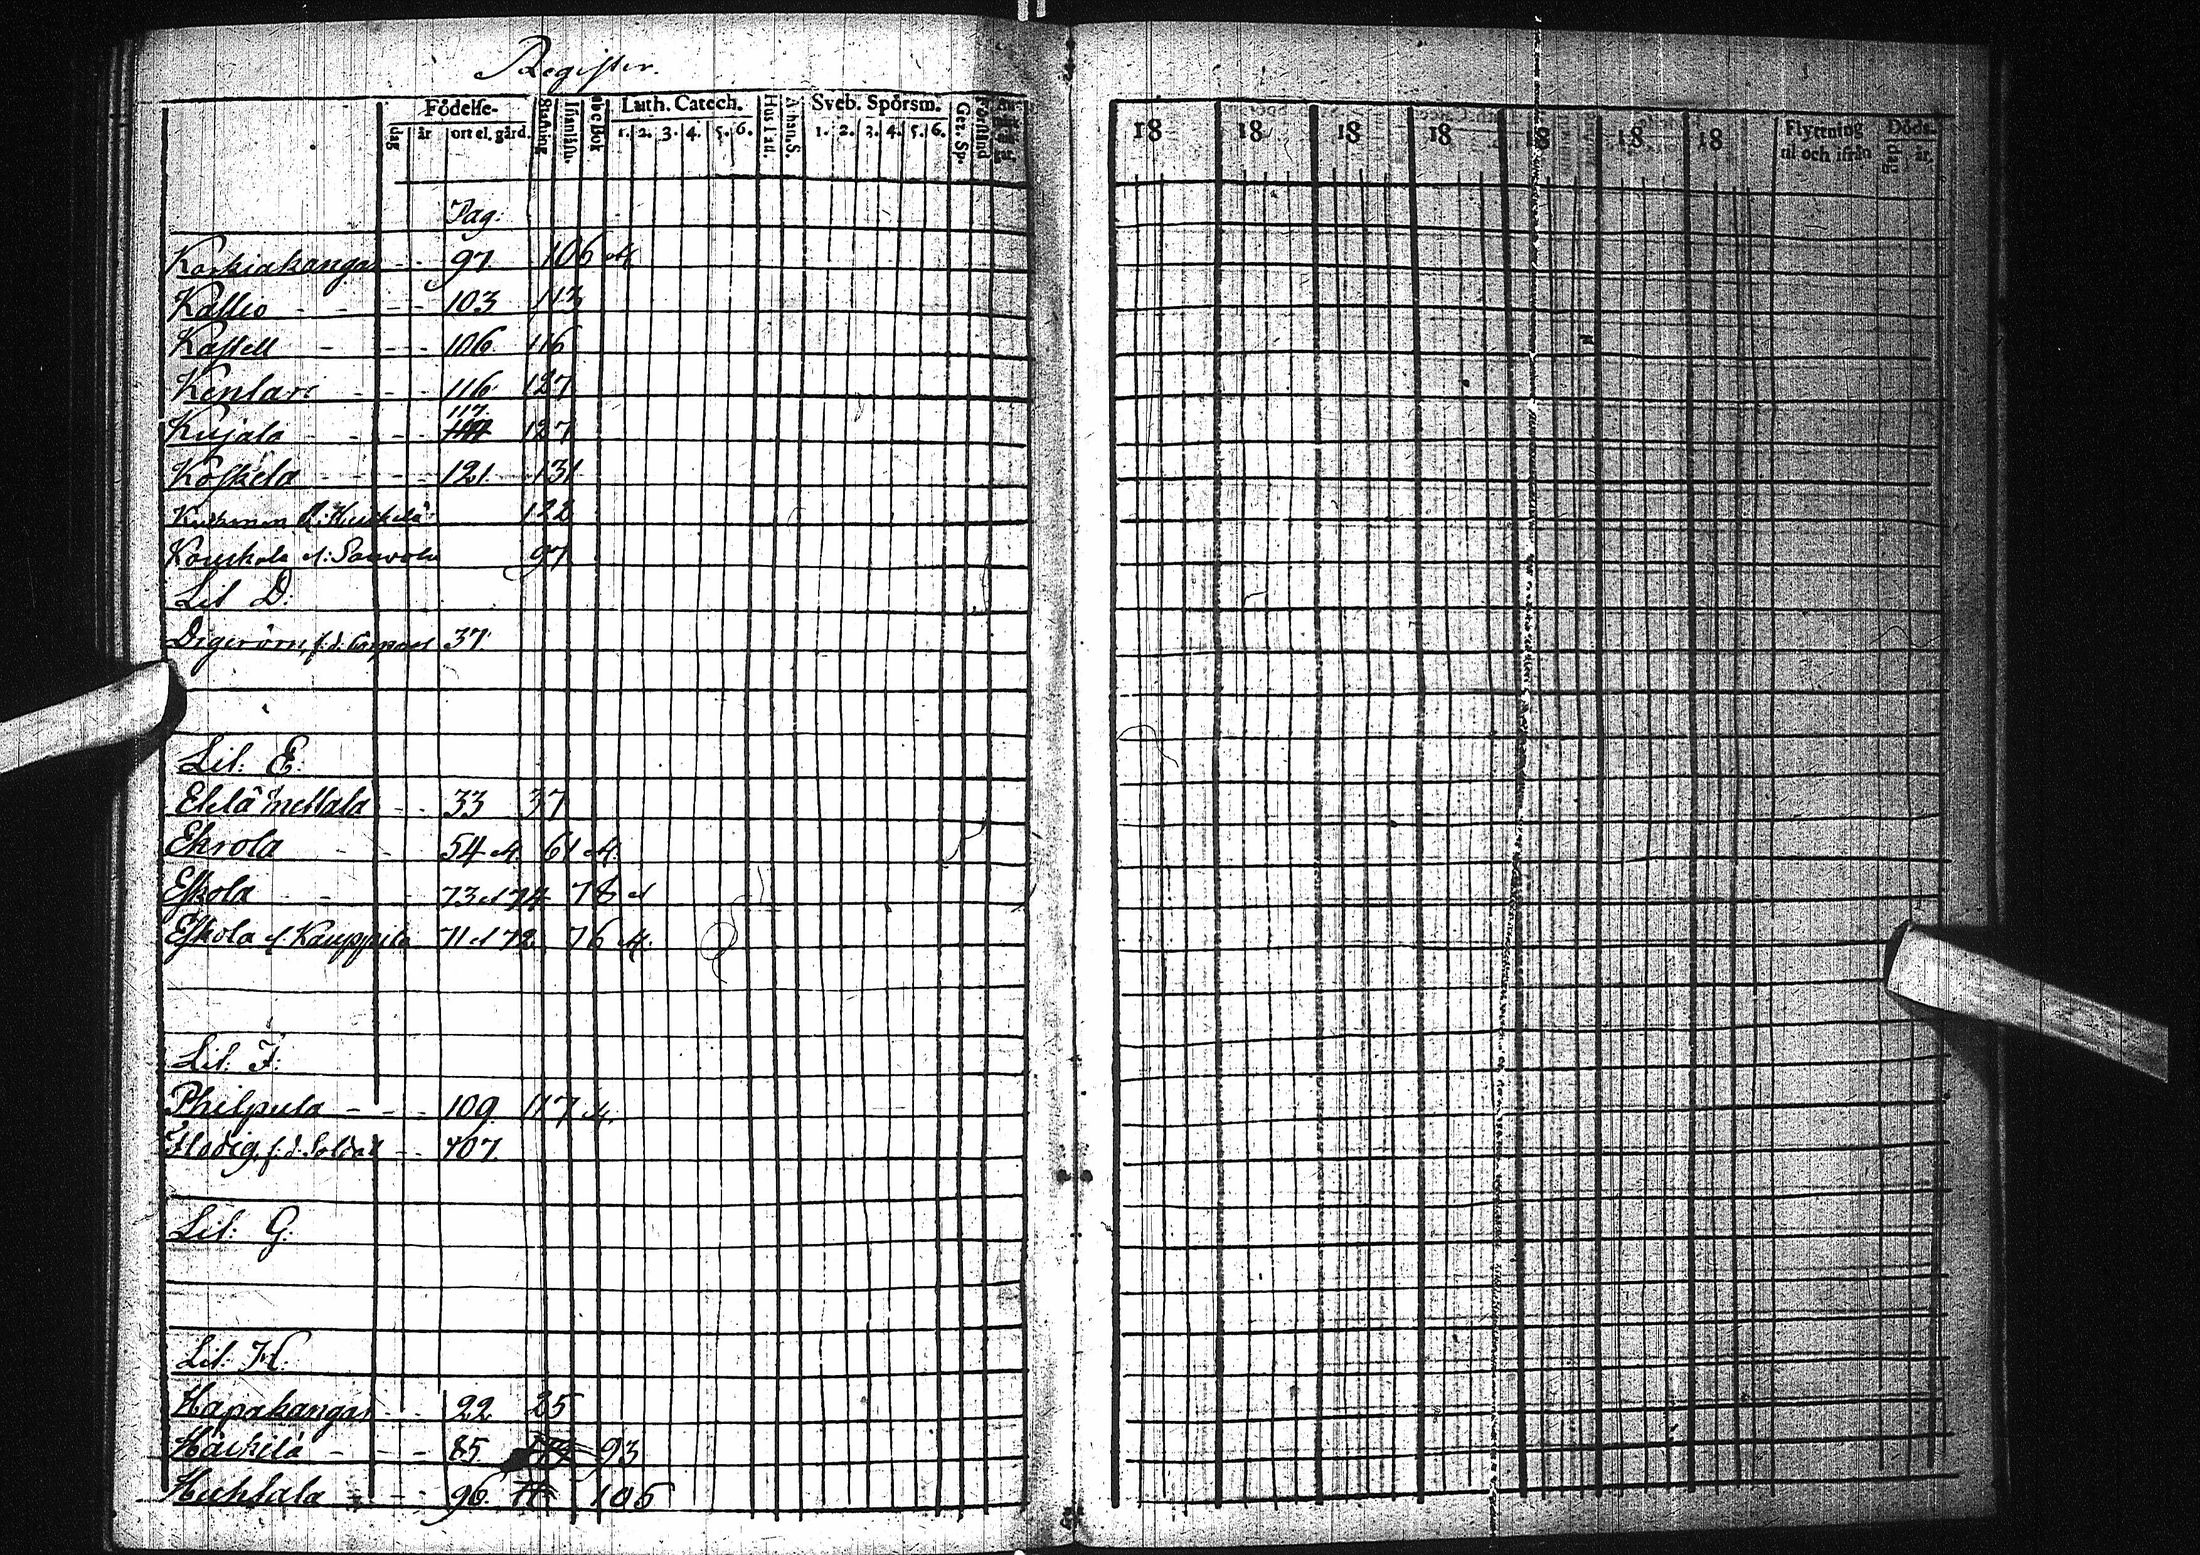 Register.
Födelse-
dag år ort el. gård.
Stafning
Innanläsn.
abc Bok
Luth. Catech.
1. 2. 3. 4. 5. 6.
Hus Taf.
Athan. S.
Sveb. Spörsm.
1. 2. 3. 4. 5. 6.
Ger. Sp.
Förstånd
Pag:
Koskiakangas - - 97. 106 et
Kallio - - - 103 113
Kastell - - - 106. 116
Kentari - - - 116. 127
Kujala - - - 117. 127
Koskela - - - 121. 131
122
97
Lit D:
f: d: Corporal 37.
Lit: E:
33 37
Ekrola - - 54 et. 61 et.
Eskola - - 73 et 74 78 et
Eskola et Kauppila 71 et 72 76 et.
Lit: F:
Philpula - - - 109. 117 et.
Flodig, f: d: Soldat - - 107.
Lit: G:
Lit: H:
Hapakangas - - 22 25
Häikilä - - - 85. 93
Huhtala - - - 96. 105
18 18 18 18 18 18 18
Flyttning
til och ifrån
Döds-
dag år.